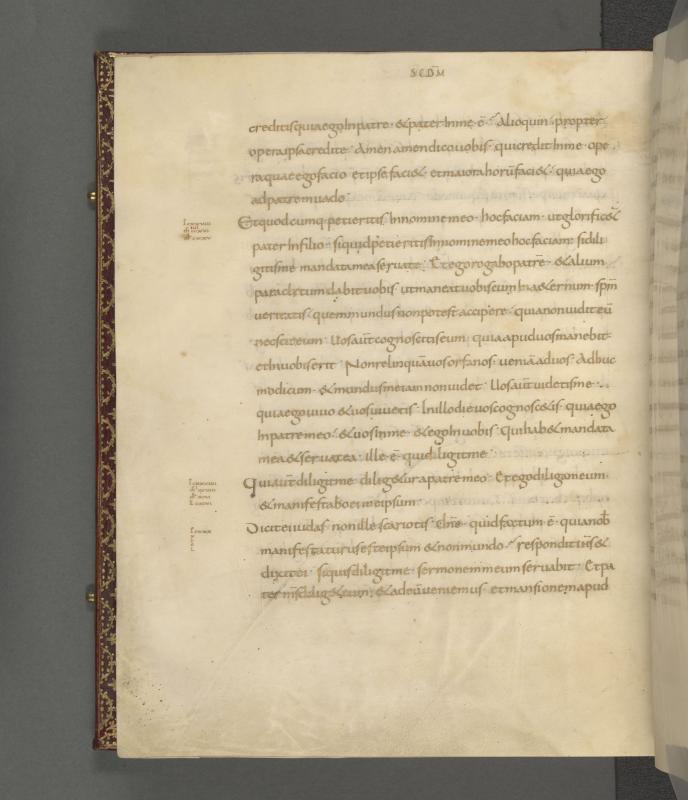 SCDM
creditis quia ego In patre · & pater In me ē · Alioquin · propter
opera ipsa credite · Amen amen dico uobis · qui credit In me · ope
ra quae ego facio · et ipse faci& · et maiora horū faci& · quia ego
ad patrem uado ·
Et quodcumq· petieritis In nomine meo · hoc faciam · ut glorific&
pater In filio · si quid petieritis In nomine meo hoc faciam · si dili
gitis me mandata mea seruate · Et ego rogabo patrē · & alium
paraclytum dabit uobis · ut maneat uobiscum In a&ernum · spm̄
ueritatis · quem mundus non potest accipere · quia non uidit eū
nec scit eum · Uos aūt cognoscetis eum · quia apud uos manebit ·
et In uobis erit · Non relinquā uos orfanos · ueniā ad uos · Adhuc
modicum · & mundus me iam non uidet · Uos aūt uidetis me ·
quia ego uiuo & uos uiuetis · In illo die uos cognosc&is · quia ego
In patre meo · & uos In me · & ego In uobis · Qui hab& mandata
mea & seruat ea · ille ē · qui diligit me ·
Qui aūt diligit me · dilig&ur a patre meo · Et ego diligam eum ·
& manifestabo ei me ipsum ·
Dicit ei iudas · non ille scariotis · dn̄e · quid factum ē · quia nob̄
manifestaturus es te ipsum & non mundo · respondit ih̄s &
dixit ei · si quis diligit me · sermonem meum seruabit · Et pa
ter ms̄ dilig& eum · & ad eū ueniemus · et mansionem apud